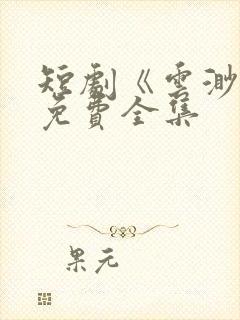 短劇《雲渺
免費全集
果元